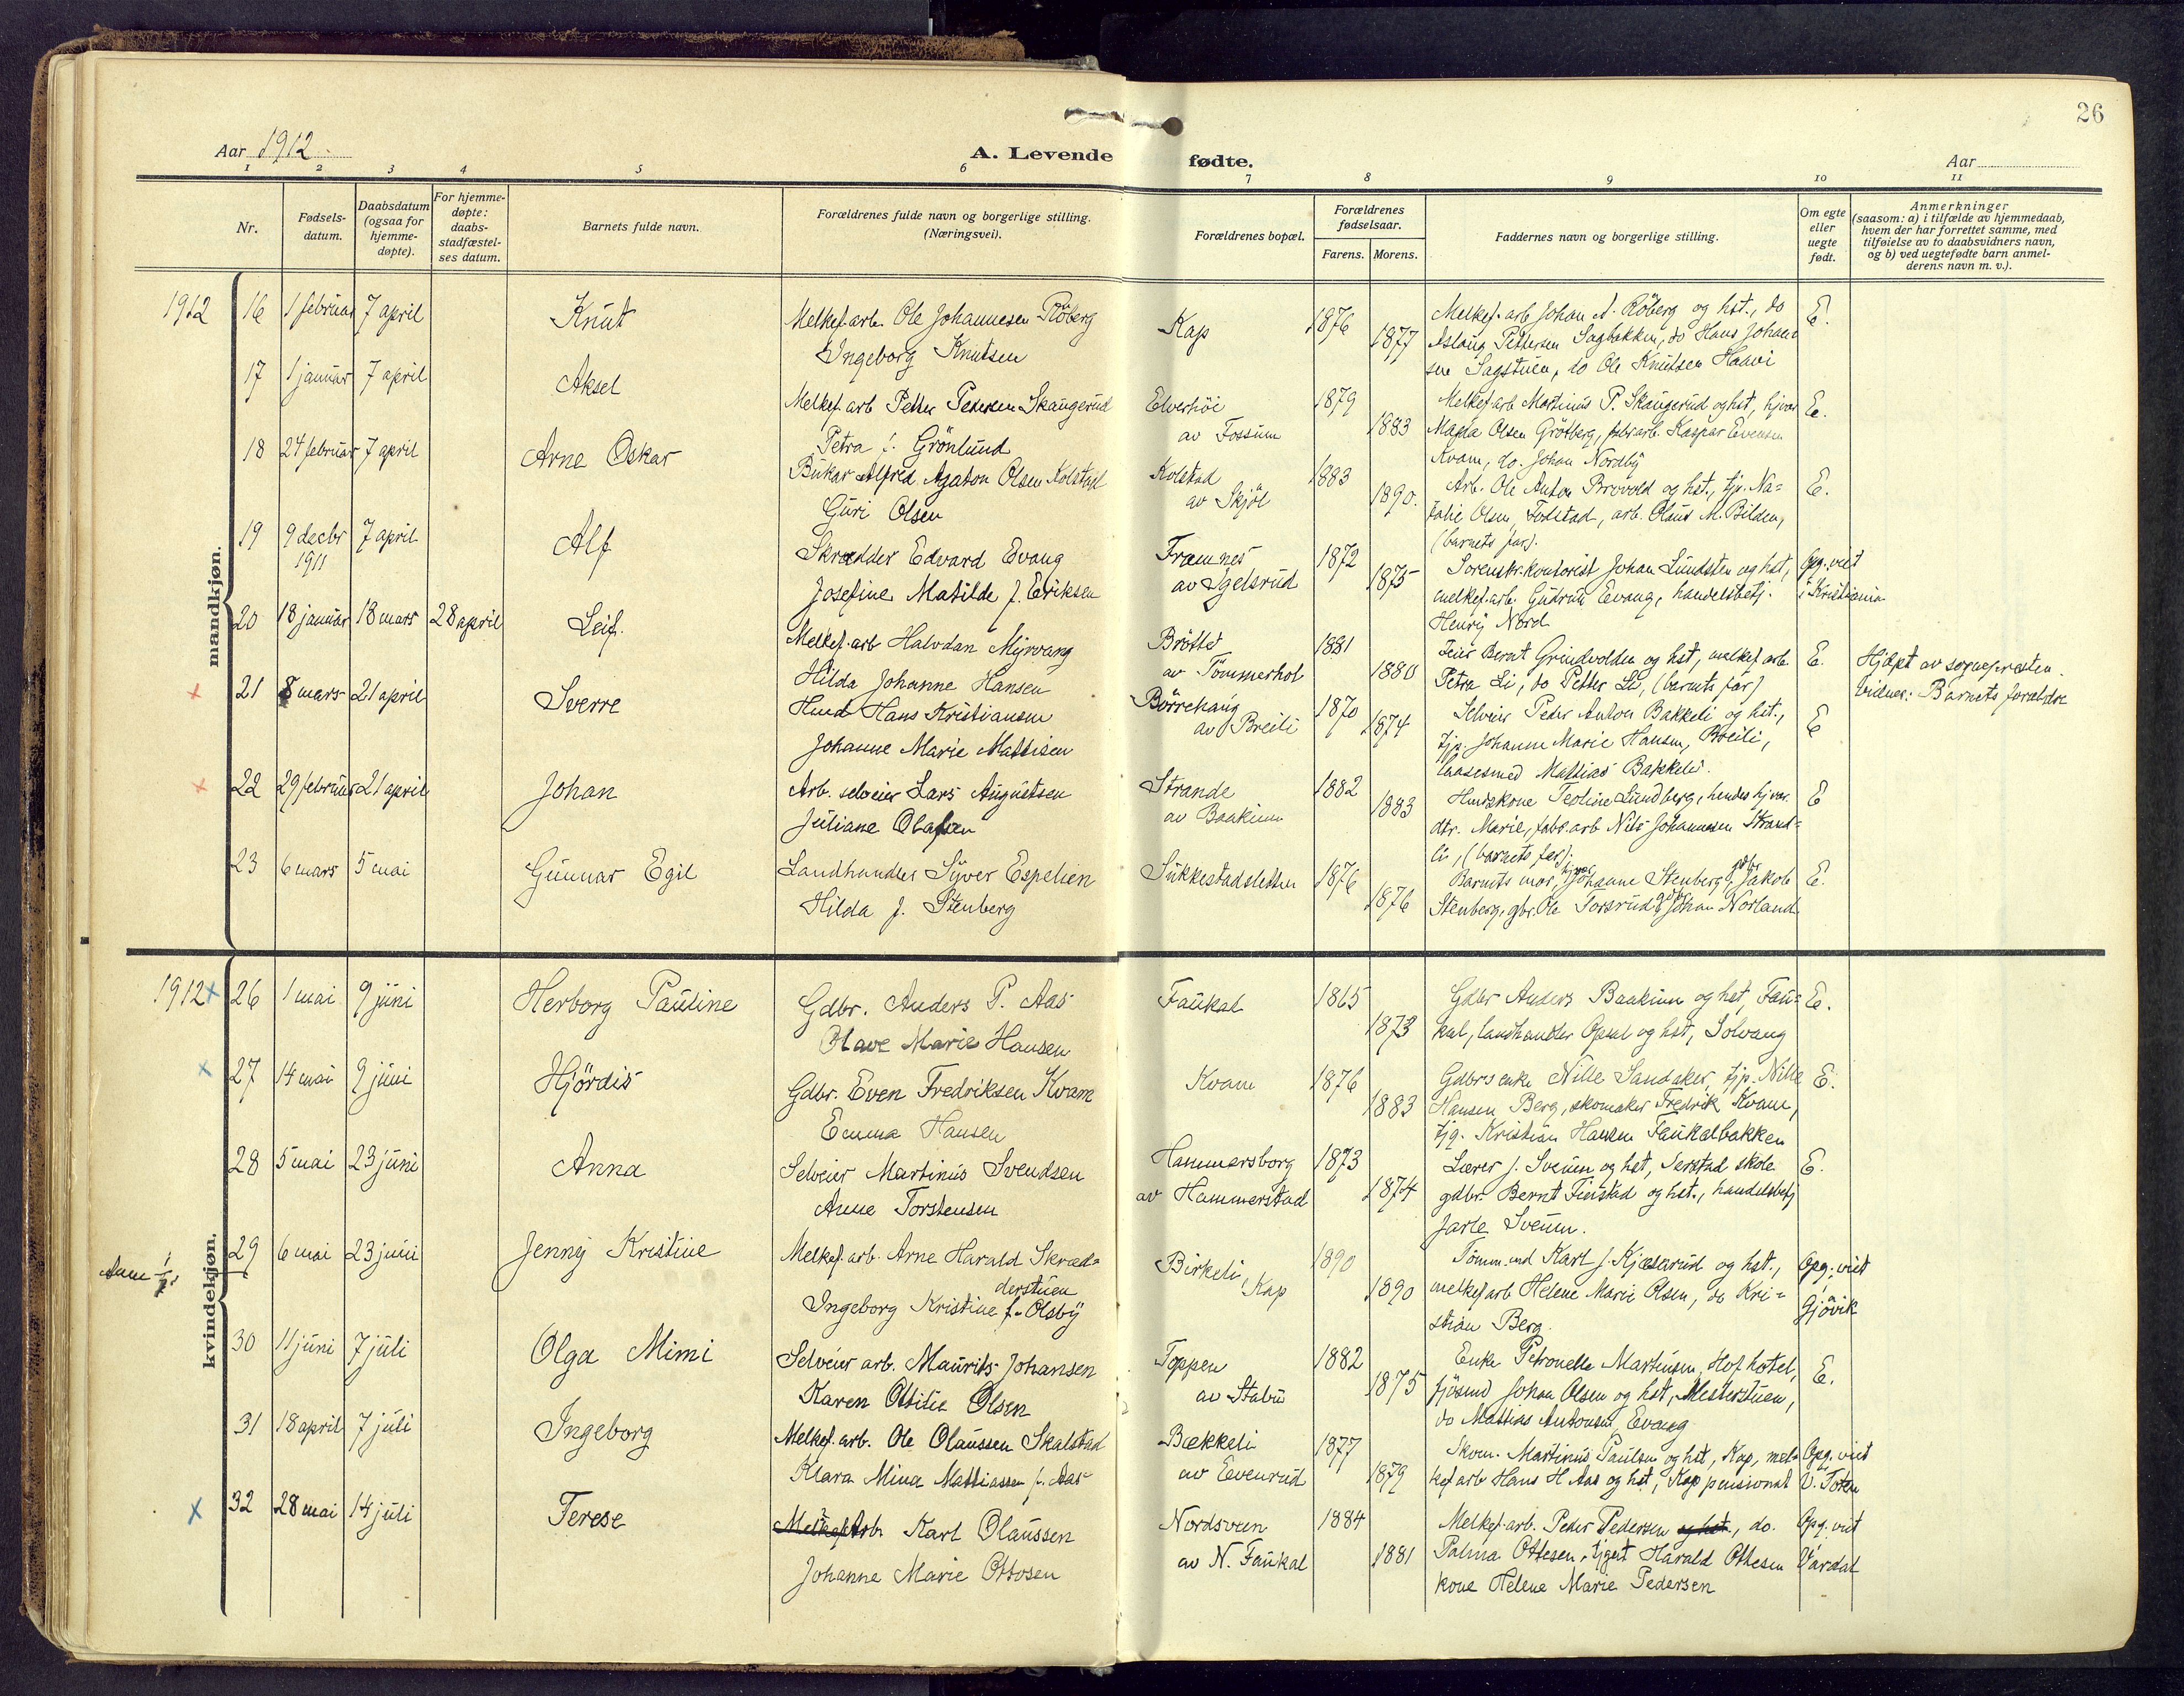 26
Aar 1912.
A. Levende fødte.
Aar
1 2 3 4 5 6 7 8 9 10 11
Nr.
Fødsels-
datum.
Daabsdatum
(ogsaa for
hjemme-
døpte).
For hjemme-
døpte:
daabs-
stadfæstel-
ses datum.
Barnets fulde navn.
Forældrenes fulde navn og borgerlige stilling.
(Næringsvei).
Forældrenes bopæl.
Forældrenes
fødselsaar.
Farens. Morens.
Faddernes navn og borgerlige stilling.
Om egte
eller
uegte
født.
Anmerkninger
(saasom: a) i tilfælde av hjemmedaab,
hvem der har forrettet samme, med
tilføielse av to daabsvidners navn,
og b) ved uegtefødte barn anmel-
derens navn m. v.).
mandkjøn.
1912 16 1 februar 7 april Knut
Melkef.arb. Ole Johannesen Röberg
Ingeborg Knutsen
Kap 1876 1877
Melkef.arb Johan A. Röberg og hst., do
Aslaug Pettersen Sagbakken, do Hans Johan
sen Sagstuen, do Ole Knutsen Haavi
E.
17 1 januar 7 april Aksel
Melkef.arb Petter Pedersen Skaugerud
Petra f. Grönlund
Elverhöi
av Fossum
1879 1883
Melkef.arb Martinus P. Skaugerud og hst, hjvar
Magda Olsen Grötberg, fabr.arb. Kaspar Evensen
Kvam, do. Johan Nordby
E.
18 24 februar 7 april Arne Oskar
Bakar Alfred Agaton Olsen Kolstad
Guri Olsen
Kolstad
av Skjöl
1883 1890.
Arb. Ole Anton Brovold og hst., tjp. Na=
talie Olsen, Fodstad, arb. Olaus M. Bilden,
(barnets far).
E.
19 9 decbr 1911 7 april Alf
Skrædder Edvard Evang
Josefine Matilde f. Eriksen
Framnes
av Igelsrud
1872 1875
Sorenskr.kontorist Johan Lundsten og hst,
melkef.arb. Gudrun Evang, handelsbetj.
Henry Nord
Opg. viet
i Kristiania
20 18 januar 13 mars 28 april Leif.
Melkef.arb Halvdan Myrvang
Hilda Johanne Hansen
Bröttet
av Tömmerhol
1881 1880
Leier Bernt Grindvolden og hst, melkef.arb.
Petra Li, do Petter Li, (barnets far)
E.
Hjdøpt av sogneprästen.
Vidner: Barnets forældre
21 8 mars 21 april Sverre
Hmd Hans Kristiansen
Johanne Marie Mattisen
Börrehaug
av Breili
1870 1874
Selveier Peder Anton Bakkeli og hst.,
tjp. Johanne Marie Hansen, Breili,
laasesmed Mattias Bakkeli.
E
22 29 februar 21 april Johan
Arb. selveier Lars Augustsen
Juliane Olafsen
Strande
av Baakinn
1882 1883
Hmdskone Teoline Lundberg, hendes hjvær.
dtr. Marie, fabr.arb Nils Johannesen Strand=
li, (barnets far).
E
23 6 mars 5 mai Gunnar Egil
Landhandler Syver Espelien
Hilda f. Stenberg
Sukkestadsletten
1876 1876
Barnets mor, hjvær Johanne Stenberg, gdbr Jakob
Stenberg, gbr. Ole Sörsrud, gdbr Johan Norland
E.
kvindekjøn.
1912 26 1 mai 9 juni Herborg Pauline
Gdbr. Anders P. Aas
Olave Marie Hansen
Faukal 1865 1873
Gdbr Anders Baakinn og hst, Fau=
kal, landhandler Opsal og hst, Solvang
E.
27 14 mai 9 juni Hjördis
Gdbr. Even Fredriksen Kvam
Emma Hansen
Kvam 1876 1883
Gdbrs enke Nille Sandaker, tjp. Nille
Hansen Berg, skomaker Fredrik Kvam,
tjg. Kristian Hansen Faukalbakken
E.
28 5 mai 23 juni Anna
Selveier Martinus Svendsen
Anne Torstensen
Hammersborg
av Hammerstad
1873 1874
Lærer J. Sveum og hst, Serstad skole
gdbr. Bernt Finstad og hst., handelsbetj
Jarle Sveum.
E.
29 6 mai 23 juni Jenny Kristine
Melkef.arb. Arne Harald Skræd=
derstuen
Ingeborg Kristine f. Olsby
Birkeli, Kap
1890 1890
Tömm.md Karl J. Kjeserud og hst.,
melkef.arb Helene Marie Olsen, do Kri=
stian Berg.
Opg. viet
i
Gjövik
30 11 juni 7 juli Olga Mimi
Selveier arb. Maurits Johansen
Karen Ottilie Olsen
Toppen
av Stabu
1882 1875
Enke Petronelle Martinsen, Hof hotel,
fjösmd Johan Olsen og hst, Mesterstuen,
do Mattias Antonsen, Evang
E.
31 18 april 7 juli Ingeborg
Melkef.arb. Ole Olaussen Skalstad
Klara Mina Mattiassen f. Aas
Bækkeli
av Evenrud
1877 1879
Skom. Martinus Paulsen og hst, Kap, mel=
kef.arb Hans H Aas og hst, Kap pensionat
Opg. viet
V. Toten
32 28 mai 14 juli Terese
Melkef. Arb. Karl Olaussen
Johanne Marie Ottosen
Nordsveen
av N. Faukal
1884 1881
Melkef.arb. Peder Pedersen og hst., do.
Palma Ottesen, tjgut Harald Ottesen
kone Helene Marie Pedersen
Opg. viet
i Vardal